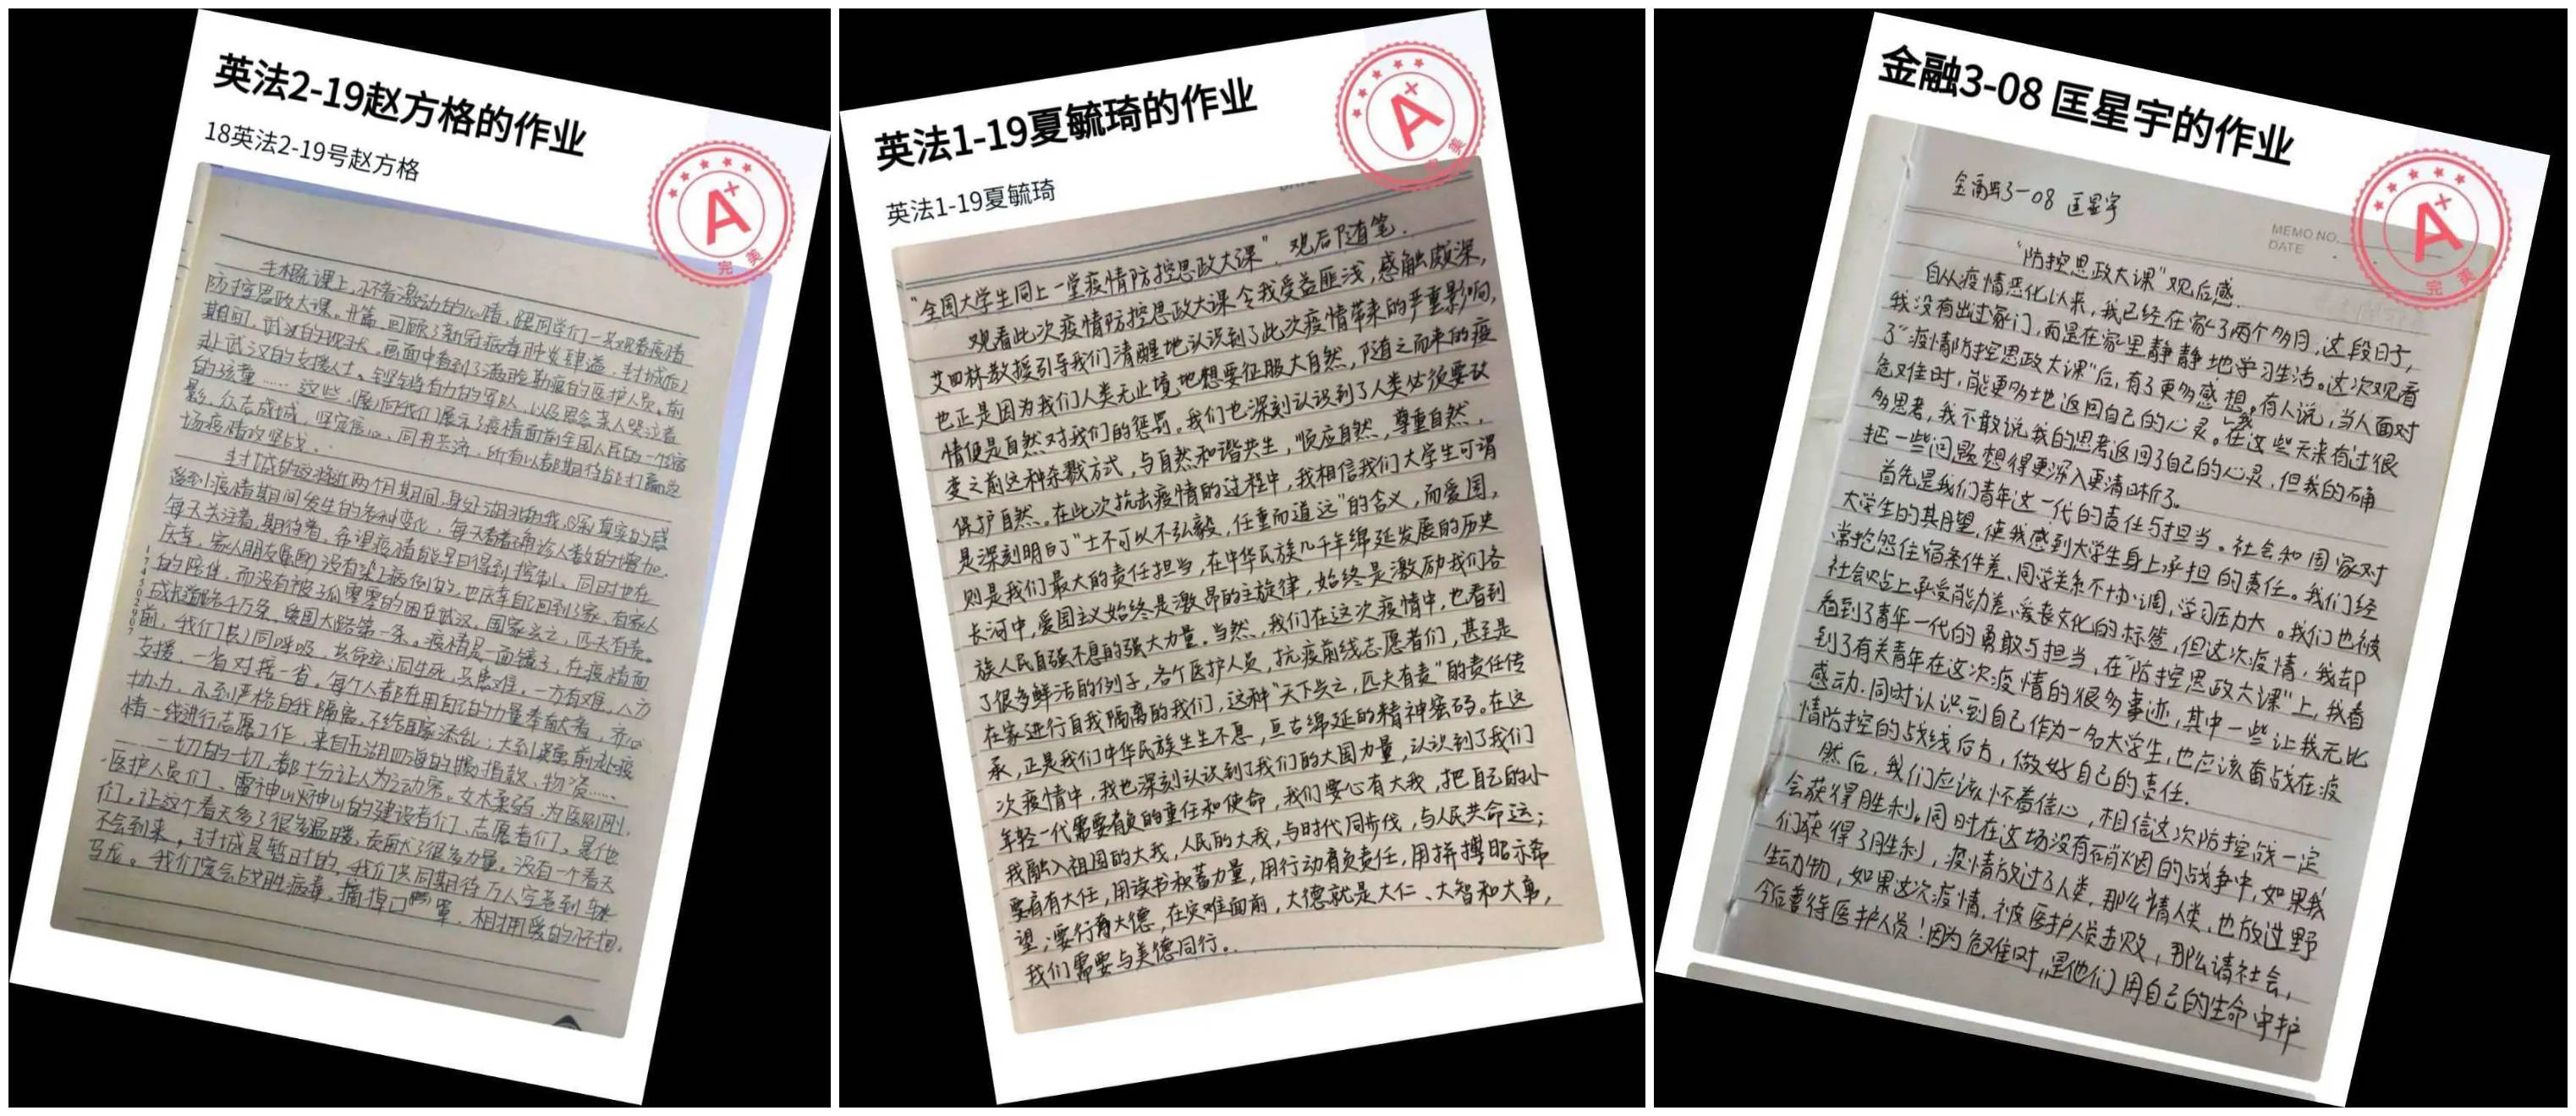 英法2-19赵方格的作业
18英法2-19号赵方格
A+
完美
毛概课上,怀着激动的心情,跟同学们一共观看疫情
防控思政大课。开篇,回顾了新冠病毒肺炎肆虐,封城后
期间,武汉的现状。画面中看到了满脸勒痕的医护人员,前
赴武汉的支援人士、铿锵有力的军队,以及思念亲人哭泣着
的孩童……这些,向我们展示了疫情面前全国人民的一个缩
影,众志成城,坚定信心、同舟共济,所有人都期待能打赢这
场疫情攻坚战。
封城的这将近两个月期间,身处湖北的我,深真实的感
受到疫情期间发生的各种变化,每天看着确诊人数的增加,
每天关注着,期待着,希望疫情能早日得到控制。同时也在
庆幸,家人朋友没有染上病例的,也庆幸自己回到了家,有家人
的陪伴,而没有被孤零零的困在武汉。国家兴亡,匹夫有责。
成长道路千万条,爱国大路第一条。疫情是一面镜子,在疫情面
前,我们共同呼吸,共命运;同生死,与患难。一方有难,八方
支援,一省对接一省,每个人都在用自己的力量奉献着,齐心
协力,小到严格自我隔离,不给国家添乱;大到前赴疫
情一线进行志愿工作,来自五湖四海的捐款、物资……
一切的一切,都十分让人为之动容。女本柔弱,为医则刚,
医护人员们、雷神山火神山的建设者们、志愿者们,是他
们,让这个春天多了很多温暖,贡献了很多力量。没有一个春天
不会到来。封城是暂时的,我们共同期待万人空巷到车水
马龙。我们定会战胜病毒,摘掉口罩,相拥爱的怀抱。
英法1-19夏毓琦的作业
英法1-19夏毓琦
A+
完美
"全国大学生同上一堂疫情防控思政大课".观后随笔.
观看此次疫情防控思政大课令我受益匪浅,感触颇深,
艾四林教授引导我们清醒地认识到了此次疫情带来的严重影响,
也正是因为我们人类无止境地想要征服大自然,随之而来的疫
情便是自然对我们的惩罚。我们也深刻认识到了人类必须要改
变之前这种杀戮方式,与自然和谐共生,顺应自然,尊重自然,
保护自然。在此次抗击疫情的过程中,我相信我们大学生可谓
是深刻明白了"士不可以不弘毅,任重而道远"的含义,而爱国,
则是我们最大的责任担当,在中华民族几千年绵延发展的历史
长河中,爱国主义始终是激昂的主旋律,始终是激励我们各
族人民自强不息的强大力量。当然,我们在这次疫情中,也看到
了很多鲜活的例子,各个医护人员,抗疫前线志愿者们,甚至是
在家进行自我隔离的我们,这种"天下兴亡,匹夫有责"的责任传
承,正是我们中华民族生生不息,亘古绵延的精神密码。在这
次疫情中,我也深刻认识到了我们的大国力量,认识到了我们
年轻一代需要肩负的重任和使命,我们要心有大我,把自己的小
我融入祖国的大我,人民的大我,与时代同步伐,与人民共命运;
要肩有大任,用读书积蓄力量,用行动肩负责任,用拼搏昭示希
望;要行有大德,在灾难面前,大德就是大仁、大智和大勇,
我们需要与美德同行。
金融3-08 匡星宇的作业
A+
完美
金融3-08 匡星宇
MEMO NO.
DATE
"防控思政大课"观后感.
自从疫情恶化以来,我已经在家了两个多月,这段日子,
我没有出过家门,而是在家里静静地学习生活。这次观看
了"疫情防控思政大课"后,有了更多感想。有人说,当人面对
危难时,能更多地返回自己的心灵。我在这些天来有过很
多思考,我不敢说我的思考返回了自己的心灵,但我的确
把一些问题想得更深入更清晰了。
首先是我们青年这一代的责任与担当。社会和国家对
大学生的期望,使我感到大学生身上承担的责任。我们经
常抱怨住宿条件差、同学关系不协调,学习压力大。我们也被
社会贴上承受能力差、丧文化的标签,但这次疫情,我却
看到了青年一代的勇敢与担当,在"防控思政大课"上,我看
到了有关青年在这次疫情的很多事迹,其中一些让我无比
感动.同时认识到自己作为一名大学生,也应该奋战在疫
情防控的战线后方,做好自己的责任.
然后,我们应该怀着信心,相信这次防控战一定
会获得胜利。同时在这场没有硝烟的战争中,如果我
们获得了胜利,疫情放过了人类,那么请人类,也放过野
生动物,如果这次疫情,被医护人员击败,那么请社会,
今后善待医护人员!因为危难时,是他们用自己的生命守护